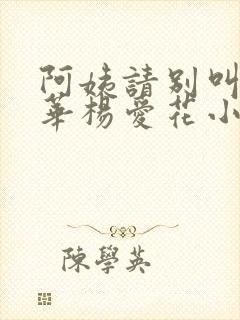 阿姨請別叫
華楊愛花小
陳學英